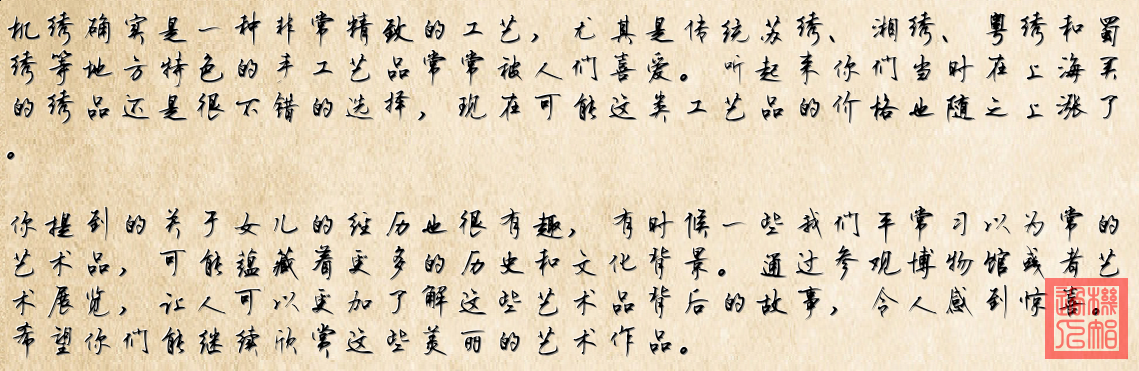 机绣确实是一种非常精致的工艺，尤其是传统苏绣、湘绣、粤绣和蜀
绣等地方特色的手工艺品常常被人们喜爱。听起来你们当时在上海买
的绣品还是很不错的选择，现在可能这类工艺品的价格也随之上涨了
。
你提到的关于女儿的经历也很有趣，有时候一些我们平常习以为常的
艺术品，可能蕴藏着更多的历史和文化背景。通过参观博物馆或者艺
术展览，让人可以更加了解这些艺术品背后的故事，令人感到惊喜。
希望你们能继续欣赏这些美丽的艺术作品。